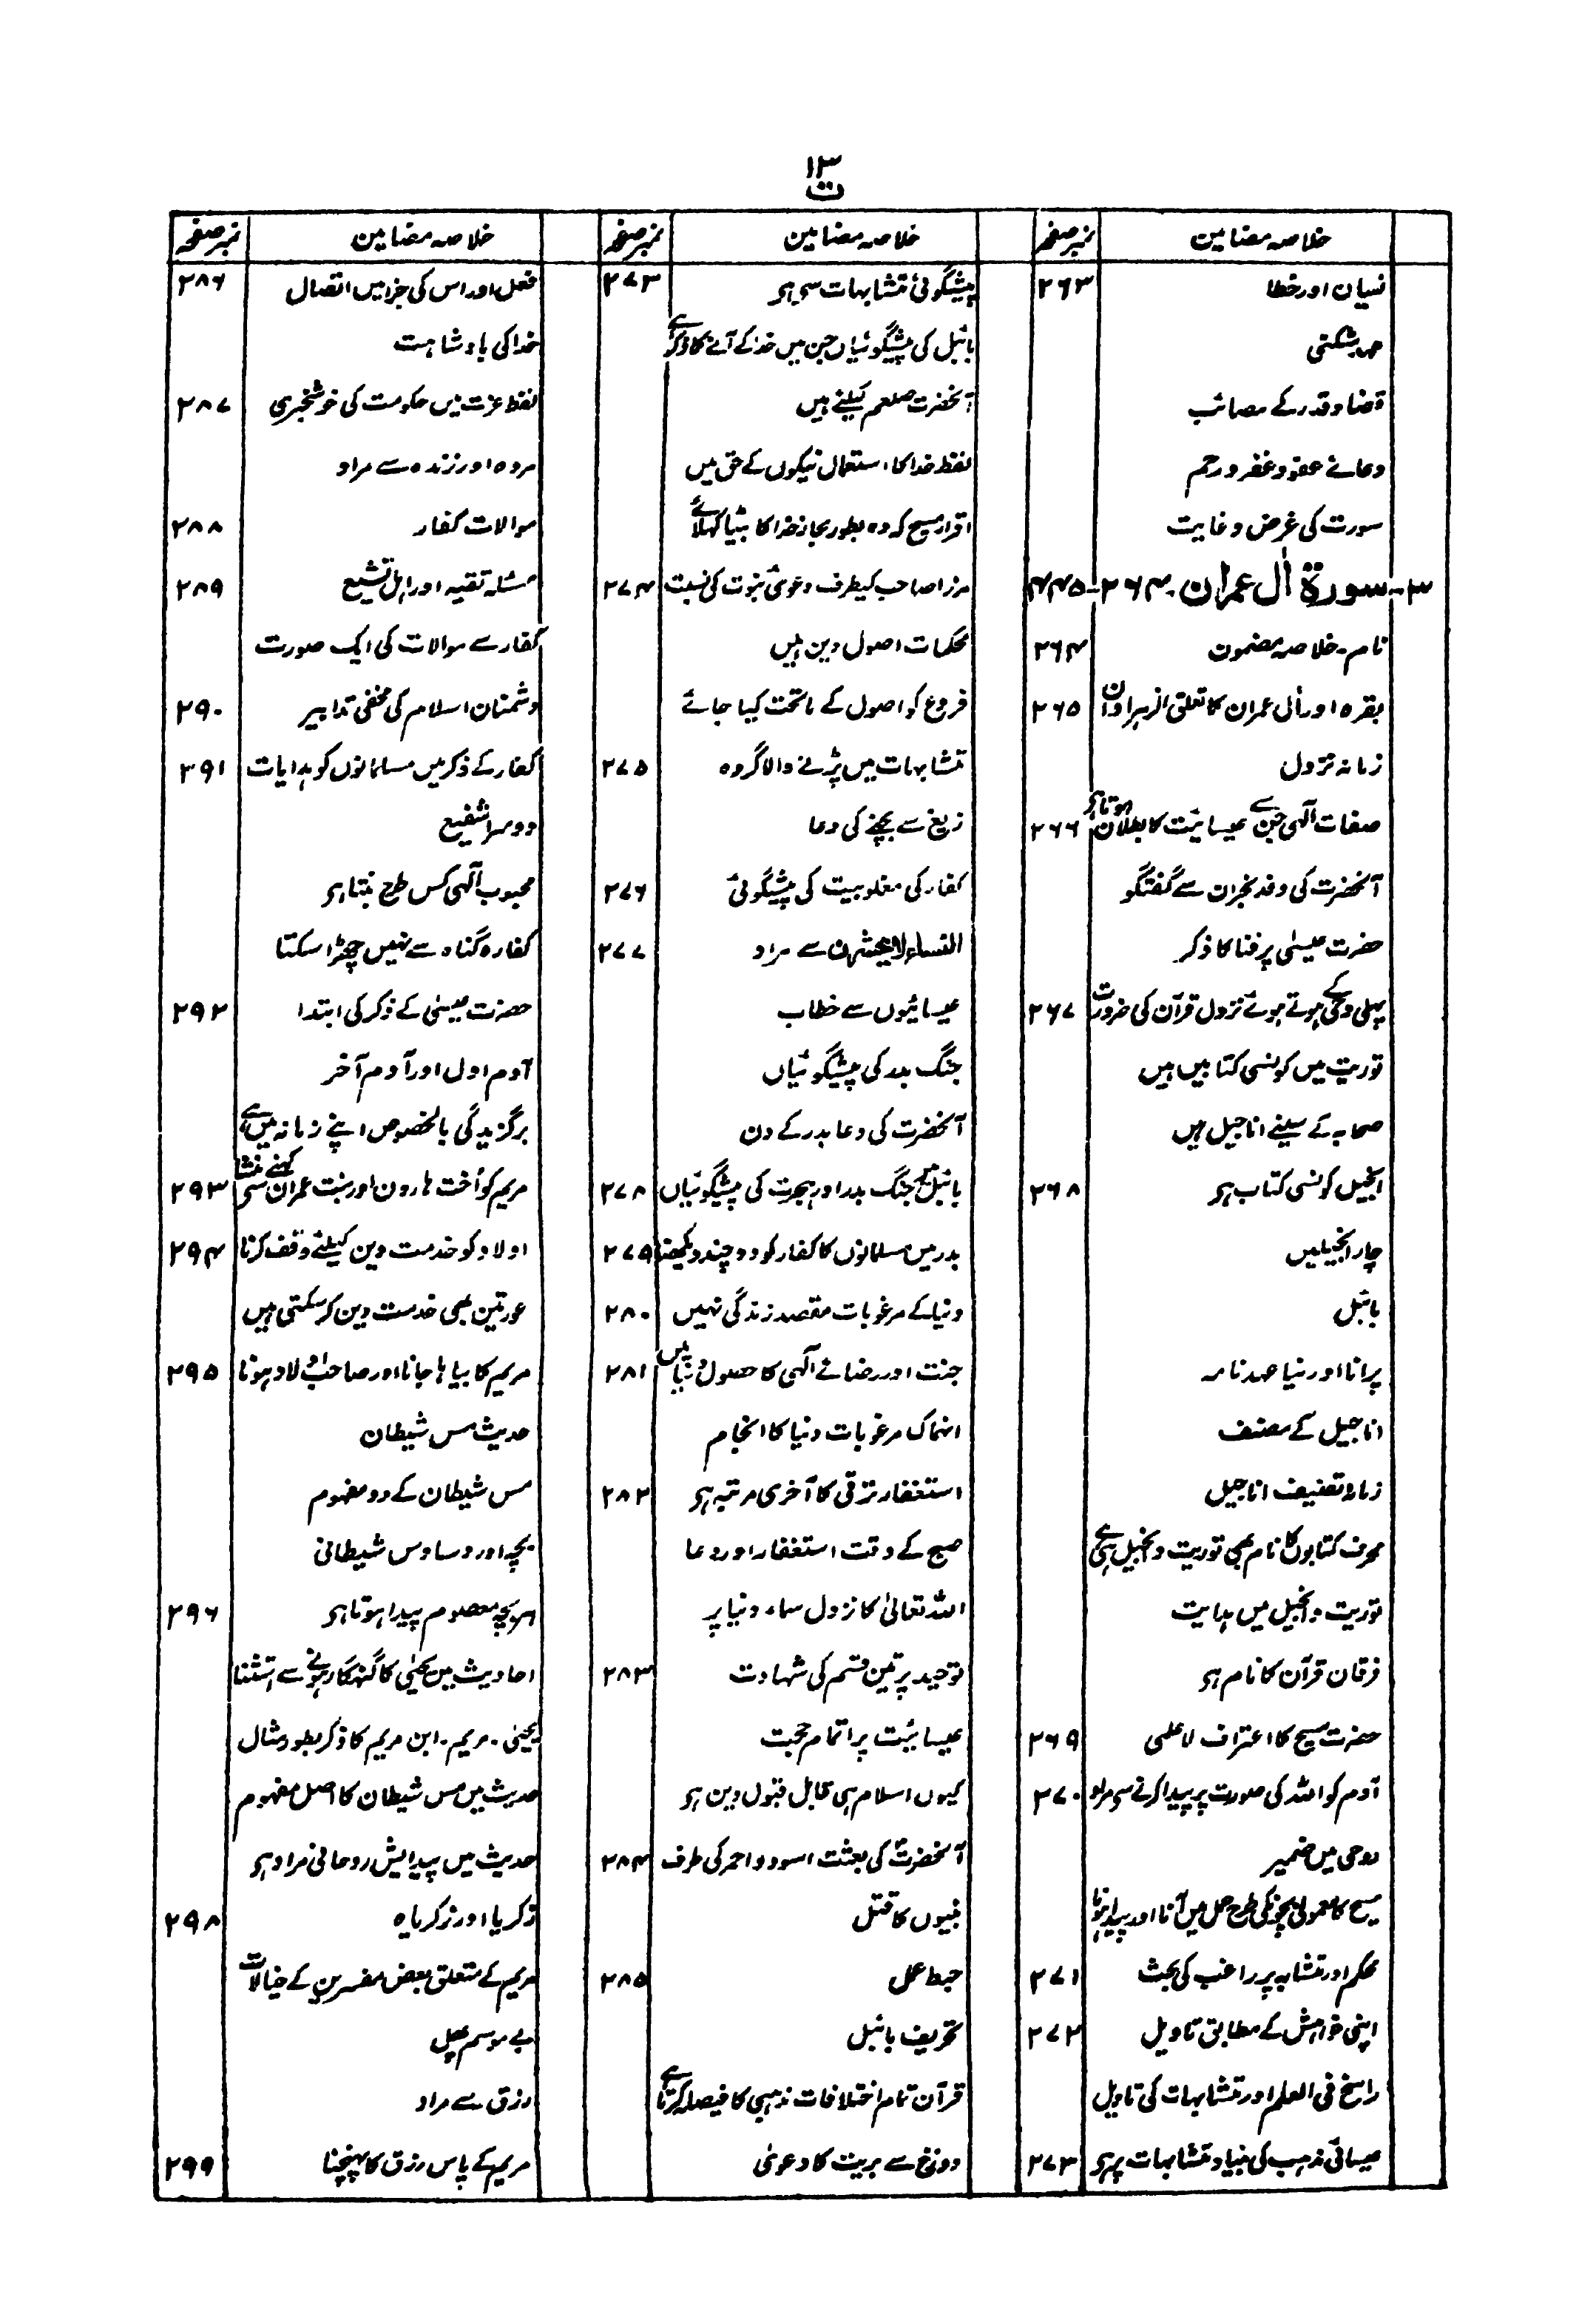 ۱۳
ت
خلاصہ مضامین نمبر صفحہ
نسیان اور خطا ۲۶۳
عہد شکنی
قضا و قدر کے مصائب
دعائے عفو و غفر و رحم
سورت کی غرض و غایت
۳۔ سورۃ اٰل عمران ۲۶۴۔۴۴۵
نام۔ خلاصہ مضمون ۲۶۴
بقرہ اور اٰل عمران کا تعلق الزہراوان ۲۶۵
زمانہ نزول
صفات الٰہی جن سے عیسائیت کا بطلان ہوتا ہر ۲۶۶
آنحضرت کی وفد نجران سے گفتگو
حضرت عیسٰی پر فنا کا ذکر
پہلی وحی کے ہوتے ہوئے نزول قرآن کی ضرورت ۲۶۷
توریت میں کونسی کتابیں ہیں
صحابہ کے سینے اناجیل ہیں
انجیل کونسی کتاب ہر ۲۶۸
چار انجیلیں
بائبل
پرانا اور نیا عہد نامہ
اناجیل کے مصنف
زمانہ تصنیف اناجیل
محرف کتابوں کا نام بھی توریت و انجیل ہی ہے
توریت و انجیل میں ہدایت
فرقان قرآن کا نام ہر
حضرت مسیح کا اعتراف لاعلمی ۲۶۹
آدم کو اللہ کی صورت پر پیدا کرنے سے مراد ۲۷۰
روحی میں ضمیر
مسیح کا معمولی بچونکی طرح حمل میں آنا اور پیدا ہونا
محکم اور متشابہ پر راغب کی بحث ۲۷۱
اپنی خواہش کے مطابق تاویل ۲۷۲
راسخ فی العلم اور متشابہات کی تاویل
عیسائی مذہب کی بنیاد متشابہات پر ہر ۲۷۳
خلاصہ مضامین نمبر صفحہ
پیشگوئی متشابہات سے ہر ۲۷۳
بائبل کی پیشگوئیاں جن میں خدا کے آنے کا ذکر ہے
آنحضرت صلعم کیلئے ہیں
لفظ خدا کا استعمال نیکوں کے حق میں
اقرار مسیح کہ وہ بطور مجاز خدا کا بیٹا کہلائے
مرزا صاحب کیطرف دعوئ نبوت کی نسبت ۲۷۴
محکمات اصول دین ہیں
فروع کو اصول کے ماتحت کیا جائے
متشابہات میں پڑنے والا گروہ ۲۷۵
زیغ سے بچنے کی دعا
کفار کی مغلوبیت کی پیشگوئی ۲۷۶
النساء لا یحشرن سے مراد ۲۷۷
عیسائیوں سے خطاب
جنگ بدر کی پیشگوئیاں
آنحضرت کی دعا بدر کے دن
بائبل میں جنگ بدر اور ہجرت کی پیشگوئیاں ۲۷۸
بدر میں مسلمانوں کا کفار کو دو چند دیکھنا ۲۷۹
دنیا کے مرغوبات مقصد زندگی نہیں ۲۸۰
جنت اور رضائے الٰہی کا حصول دنیا میں ۲۸۱
انہماک مرغوبات دنیا کا انجام
استغفار ترقی کا آخری مرتبہ ہر ۲۸۲
صبح کے وقت استغفار اور دعا
اللہ تعالیٰ کا نزول سماء دنیا پر
توحید پر تین قسم کی شہادت ۲۸۳
عیسائیت پر اتمام حجت
کیوں اسلام ہی قابل قبول دین ہر
آنحضرتؐ کی بعثت اسود و احمر کی طرف ۲۸۴
نبیوں کا قتل
حبط عمل ۲۸۵
تحریف بائبل
قرآن تمام اختلافات مذہبی کا فیصلہ کرتا ہے
دوزخ سے بریت کا دعوٰی
خلاصہ مضامین نمبر صفحہ
فعل اور اس کی جزا میں اتصال ۲۸۶
خدا کی بادشاہت
لفظ عزت میں حکومت کی خوشخبری ۲۸۷
مردہ اور زندہ سے مراد
موالات کفار ۲۸۸
مسئلہ تقیہ اور اہل تشیع ۲۸۹
کفار سے موالات کی ایک صورت
دشمنان اسلام کی مخفی تدابیر ۲۹۰
کفار کے ذکر میں مسلمانوں کو ہدایات ۲۹۱
دوسرا شفیع
محبوب الٰہی کس طرح بنتا ہر
کفارہ گناہ سے نہیں چھڑا سکتا
حضرت عیسٰی کے ذکر کی ابتدا ۲۹۲
آدم اول اور آدم آخر
برگزیدگی بالخصوص اپنے زمانہ میں ہے
مریم کو اُخت ہارون اور بنت عمران کہنے سے منشا ۲۹۳
اولاد کو خدمت دین کیلئے وقف کرنا ۲۹۴
عورتیں بھی خدمت دین کر سکتی ہیں
مریم کا بیاہا جانا اور صاحب اولاد ہونا ۲۹۵
حدیث مس شیطان
مس شیطان کے دو مفہوم
بچہ اور وساوس شیطانی
ہر بچہ معصوم پیدا ہوتا ہر ۲۹۶
احادیث میں یحیٰی کا گنہگار ہونے سے استثنا
یحیٰی۔ مریم۔ ابن مریم کا ذکر بطور مثال
حدیث میں مس شیطان کا اصل مفہوم
حدیث میں پیدایش روحانی مراد ہر
زکریا اور زکریاہ ۲۹۸
مریم کے متعلق بعض مفسرین کے خیالات
بے موسم پھل
رزق سے مراد
مریم کے پاس رزق کا پہنچنا ۲۹۹